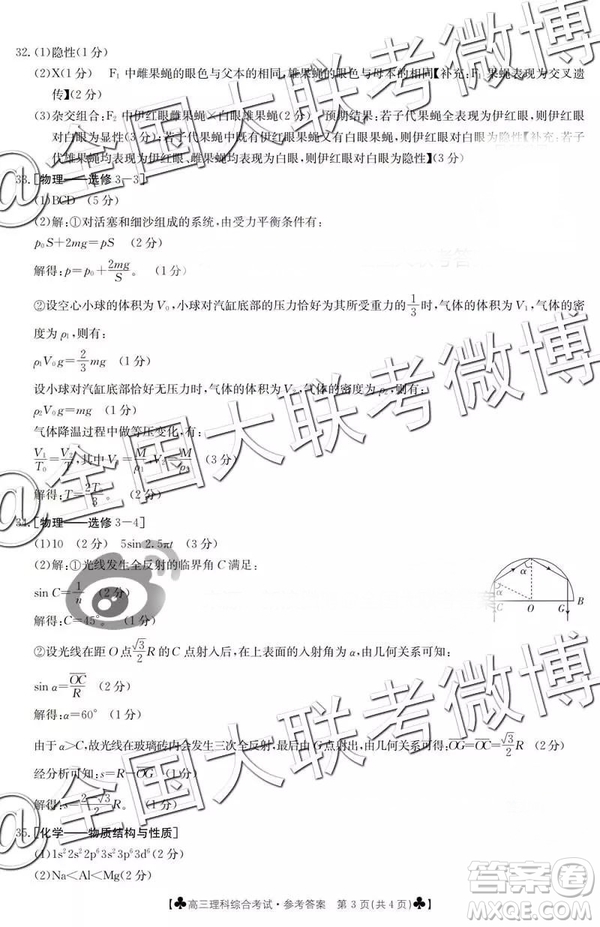 32.(1)隐性(1分)
(2)X(1分) F₁中雌果蝇的眼色与父本的相同,雄果蝇的眼色与母本的相同【补充:F₁果蝇的眼色表现为交叉遗
传】(2分)
(3)杂交组合:F₂中伊红眼雌果蝇×白眼雄果蝇(2分) 预期结果:若子代果蝇全部表现为伊红眼,则伊红眼
对白眼为显性(3分);若子代果蝇中既有伊红眼又有白眼,则伊红眼对白眼为隐性【补充:若子
代雄果蝇均表现为伊红眼、雌果蝇均表现为白眼,则伊红眼对白眼为隐性】(3分)
33.[物理——选修3-3]
(1)BCD (5分)
(2)解:①对活塞和细沙组成的系统,由受力平衡条件有:
p₀S+2mg=pS (2分)
解得:p=p₀+2mg/S。(1分)
②设空心小球的体积为V₀,小球对汽缸底部的压力恰好为其所受重力的1/3时,气体的体积为V₁,气体的密
度为ρ₁,则有:
ρ₁V₀g=2/3mg (1分)
设小球对汽缸底部恰好无压力时,气体的体积为V₂,气体的密度为ρ₂,则有:
ρ₂V₀g=mg (1分)
气体降温过程中做等压变化,有:
V₁/T₀=V₂/T,其中V₁=M/ρ₁,V₂=M/ρ₂ (3分)
解得:T=2T₀/3。(2分)
34.[物理——选修3-4]
(1)10 (2分) 5sin2.5πt (3分)
(2)解:①光线发生全反射的临界角C满足:
sin C=1/n (2分)
解得:C=45°。(1分)
②设光线在距O点√3/2R的C点射入后,在上表面的入射角为α,由几何关系可知:
sin α=OC/R (2分)
解得:α=60° (1分)
由于α>C,故光线在玻璃砖内会发生三次全反射,最后由G点射出,由几何关系可得:OG=OC=√3/2R (2分)
经分析可知:s=R-OG (1分)
解得:s=2-√3/2R。(1分)
α
α
C
O
G
B
35.[化学——物质结构与性质]
(1)1s²2s²2p⁶3s²3p⁶3d⁵(2分)
(2)Na<Al<Mg(2分)
【♣高三理科综合考试·参考答案 第3页(共4页)♣】
@全国大联考微博
@全国大联考微博
答案圈
MXQE.COM